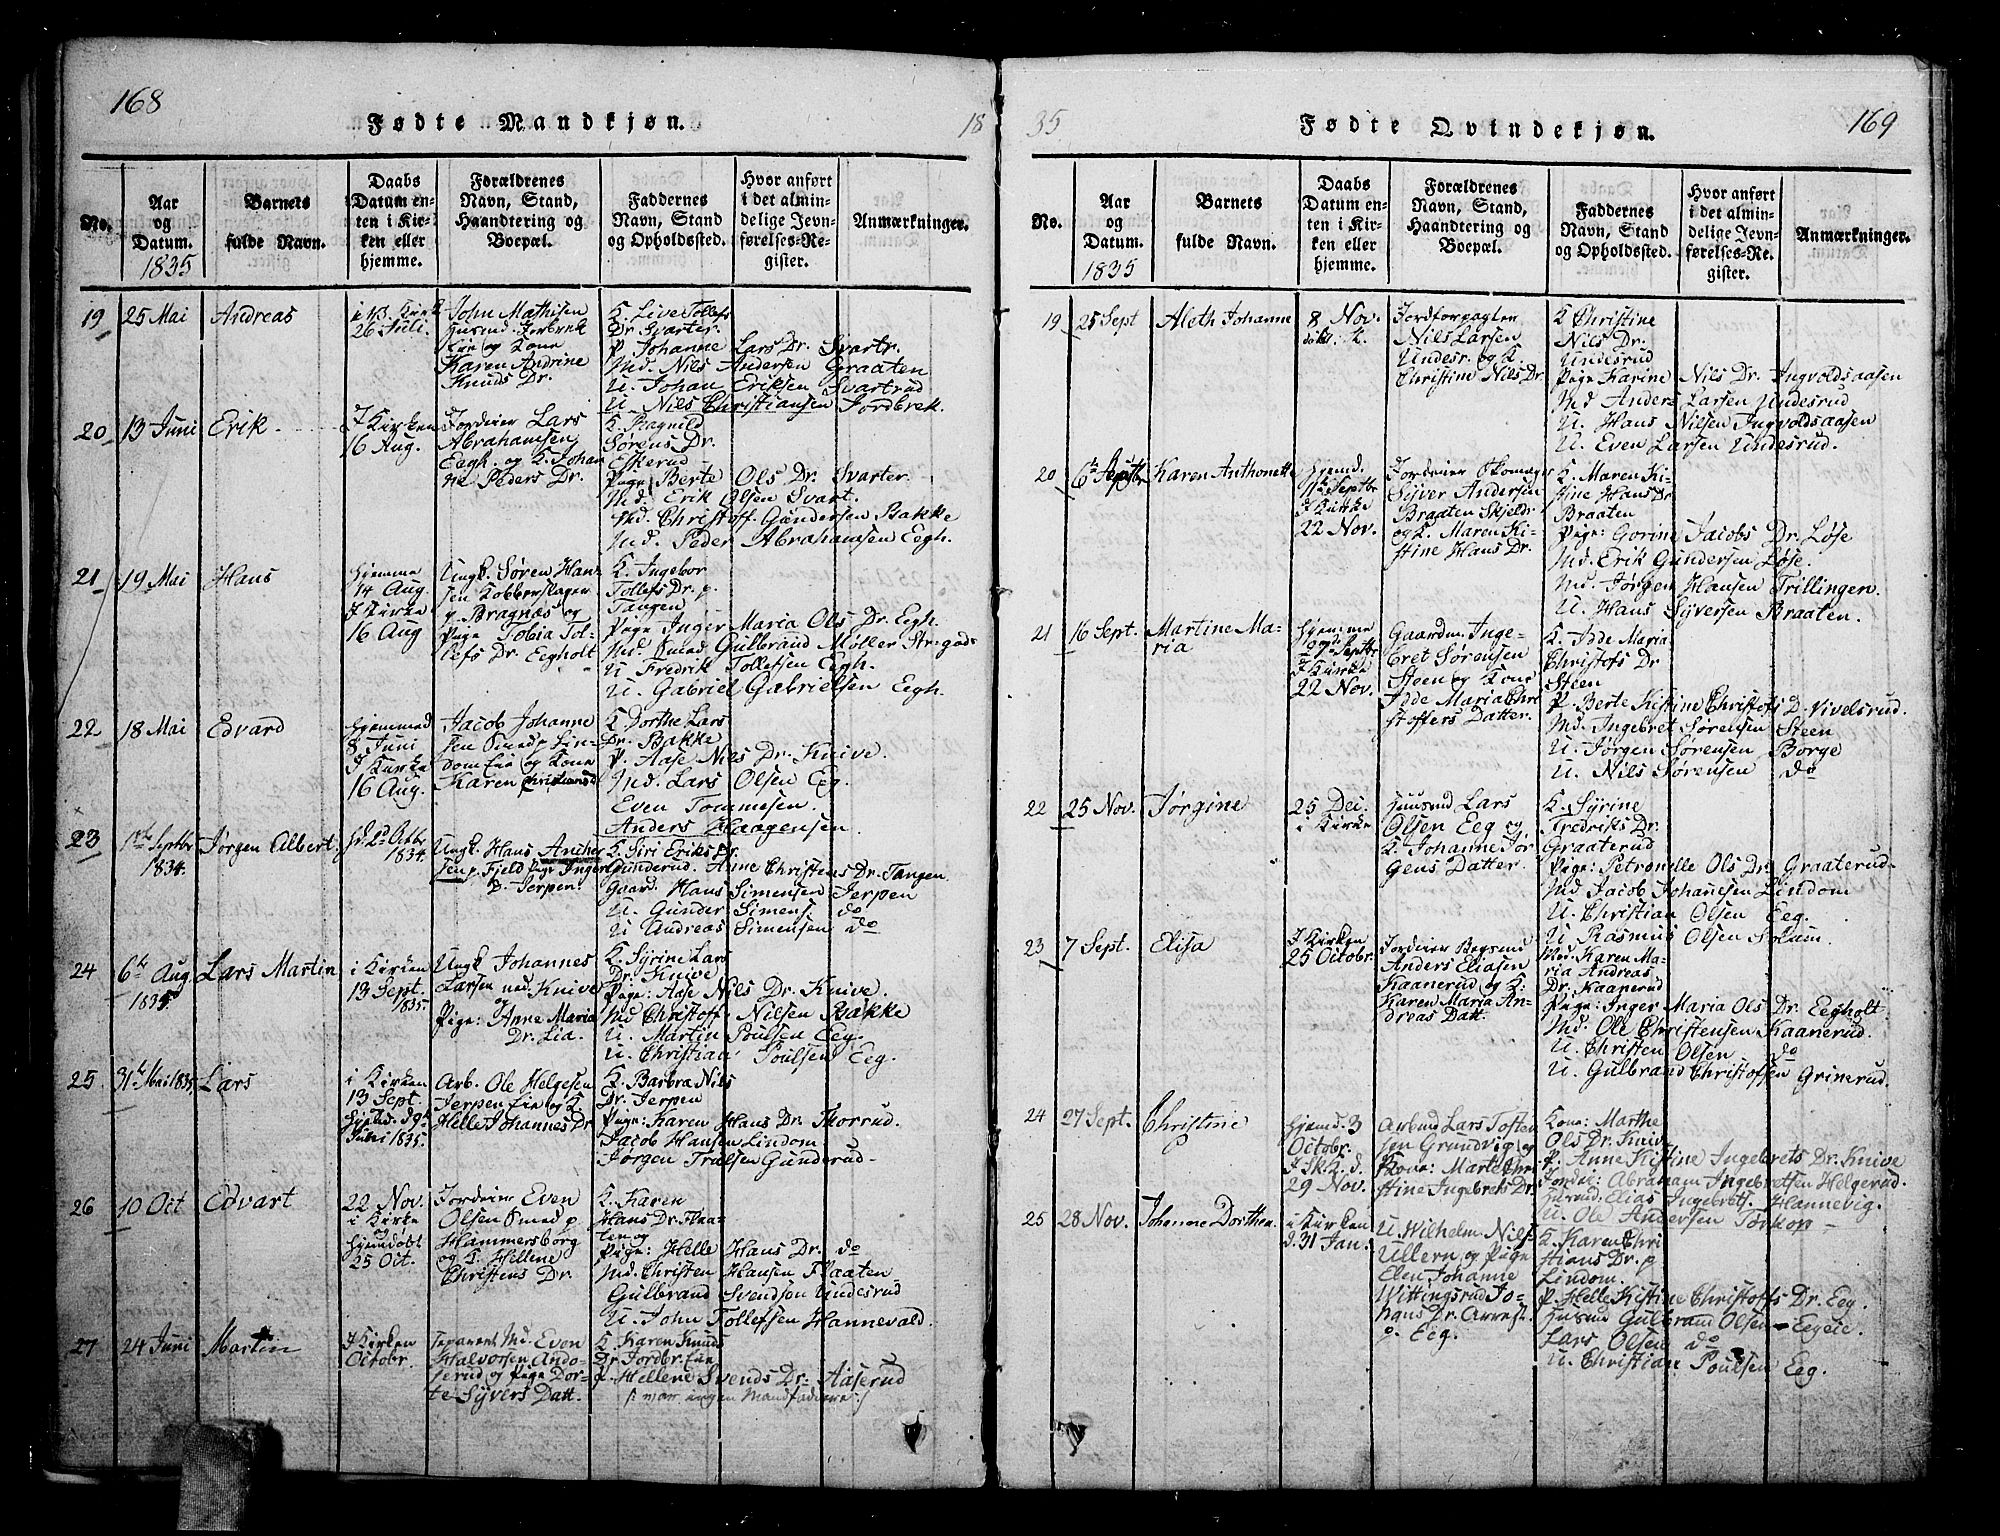 168
Fødte Mandkjøn.
18
No.
Aar
og
Datum.
1835
Barnets
fulde Navn.
Daabs
Datum en-
ten i Kir-
ken eller
hjemme.
Forældrenes
Navn, Stand,
Haandtering og
Boepæl.
Faddernes
Navn, Stand
og Opholdssted.
Hvor anført
i det almin-
delige Jevn-
førelses-Re-
gister.
Anmærkninger.
19
25 Mai
Andreas
26 Juli.
John Mathisen
Eie og Kone
Karen Andrine
Knuds Dr.
K. Live Tollefs
Dr. Svarter.
P. Johanne Lars Dr. Svartr.
Md. Nils Andersen Graaten
U. Johan Eriksen Svartrud
U. Nils Christiansen Jordbrek.
20
13 Juni
Erik
I Kirken
16 Aug.
Jordeier Lars
Abrahamsen
Eegh. og K. Johan
ne Peders Dr.
K. Ragnild
Sørens Dr.
Eskerud
Pige Berte Ols Dr. Svarter
Md. Erik Olsen Svart.
Md. Christoff. Gundersen Bakke
Md. Peder Abrahamsen Eegh.
21
19 Mai
Hans
hjemme
14 Aug.
I Kirke
16 Aug
Ungk. Søren Han-
sen Kobberslager
p. Bragnæs og
Pige Tobia Tol-
lefs Dr. Eegholt
K. Ingebor
Tollefs Dr. p.
Tangen
Pige Inger Maria Ols Dr. Eegh.
Gulbrand Møller
U Fredrik Tollefsen Eegh.
U. Gabriel Gabrielsen Eegh.
22
18 Mai
Edvard
hjemmed
8 Juni
I Kirke
16 Aug.
Jacob Johanne
sen Smed p Lin-
dom Eie og Kone
Karen Christiansd
K Dorthe Lars
Dr. Bakke
P. Aase Nils Dr. Knive.
Md. Lars Olsen Eeg.
Even Tommesen.
Anders Haagensen.
23
Septbr
1834.
Jørgen Albert
Octbr
1834.
Ungk. Hans
sen p. Fjeld Pige Inger
p. Jerpen.
K. Siri Eriks Dr.
Gunderud. Anne Christens Dr. Tangen
Gaard. Hans Simensen Jerpen
U. Gunder Simens. do
U Andreas Simensen do
24
6te Aug
1835.
Lars Martin
i Kirken
13 Sept.
1835.
Ungk Johannes
Larsen ned. Knive
og
Pige: Anne Maria
Dr. Lia.
K. Syrine Lars
Dr. Knive
Pige: Aase Nils Dr. Knive.
Md Christoff. Nilsen Bakke
U. Martin Poulsen Eeg.
U. Christian Poulsen Eeg.
25
31te Mai 1835
Lars
i Kirken
13 Sept.
Juni 1835.
Arb. Ole Helgesen
Jerpen Eie og K.
Helle Johannes Dr
K. Barbra Nils
Dr. Jerpen
Pige: Karen Hans Dr. Thorrud.
Jacob Hansen Lindom.
Jørgen Trulsen Gunderud.
26
10 Oct
Edvart
22 Nov.
i Kirke
hjemdøbt
25 Oct.
Jordeier Even
Olsen Smed p
Hammersborg
og K. Hellene
Christens Dr.
K. Karen
Hans Dr. Flaa-
ten og
Pige: Helle Hans Dr. do
Md. Christen Hansen Flaaten
Gulbrand Svendsen Undesrud
U. John Tollefsen Hannevald.
27
24 Juni
Martin
I Kirken
Octobr.
Md. Even
Halvorsen
og Pige Dor-
te Syvers Datt.
K. Karen Knuds
Dr Jordbr. Eie
P. Hellene Svends Dr. Aaserud
/: var ingen Mandfaddere :/
35
Fødte Qvindekjøn.
169
No.
Aar
og
Datum.
1835
Barnets
fulde Navn.
Daabs
Datum en-
ten i Kir-
ken eller
hjemme.
Forældrenes
Navn, Stand,
Haandtering og
Boepæl.
Faddernes
Navn, Stand
og Opholdssted.
Hvor anført
i det almin-
delige Jevn-
førelses-Re-
gister.
Anmærkninger.
19
25 Sept
Aleth Johanne
8 Nov.
Jordforpagter
Nils Larsen
Undesr. og K.
Christine Nils Dr
K Christine
Nils Dr.
Undesrud
Pige Karine Nils Dr. Ingvoldsaasen
Md Anders Larsen Undesrud
U. Hans Nilsen Ingvoldsaasen
U. Even Larsen Undesrud.
20
6te Septbr
Karen Anthonette
hjemd.
Septbr
I Kirke
22 Nov.
Jordeier Skomager
Syver Andersen
Braaten Skjeldr
og K. Maren Ki-
stine Hans Dr.
K. Maren Ki-
stine Hans Dr
Braaten
Pige: Gorine Jacobs Dr. Løse
Md. Erik Gundersen Løse.
Md. Jørgen Hansen Trillingen.
U. Hans Syversen Braaten.
21
16 Sept.
Martine Ma-
ria
hjemme
Septbr
I Kirke
22 Nov.
Gaardm. Inge-
bret Sørensen
Steen og Kone
Maria Chri
stoffers Datter.
K. Maria
Christofs Dr
Steen
P. Berte Kistine Christofs D. Vivelsrud.
Md. Ingebret Sørensen Steen
U. Jørgen Sørensen Borge
U. Nils Sørensen do
22
25 Nov.
Jørgine
25 Dec.
i Kirke
Huusmd Lars
Olsen Eeg og
K. Johanne Jør
gens Datter.
K. Syrine
Fredriks Dr.
Graaterud
Pige: Petronelle Ols Dr. Graaterud
Md Jacob Johansen Lindom
U. Christian Olsen Eeg.
U. Rasmus Olsen Solum.
23
7 Sept.
Elisa
I Kirken
25 Octobr.
Jordeier
Anders Eliasen
Kaanerud og K.
Karen Maria An-
dreas Datt.
Karen Ma-
ria Andreas
Dr. Kaanerud
Pige: Inger Maria Ols Dr. Eegholt
Md. Ole Christensen Kaanerud.
U. Christen Olsen do
U. Gulbrand Christofsen Grinerud.
24
27 Sept.
Christine
hjemd. 3
Octobr.
29 Nov.
Arbmd Lars Tosten
sen Grundvig og
Kone: Marte Chri
stine Ingebrets Dr.
Kone: Marthe
Ols Dr. Knive
P. Anne Kistine Ingebrets Dr. Knive
Abraham Ingebretsen Helgerud.
Elias Ingebrets. Hannevig.
U. Ole Andersen Torkop
25
28 Nov.
Johanne Dorthea
i Kirken
d. 31 Jan.
U. Wilhelm Nils.
Ullern og Pige
Elen Johanne
Wittingsrud Jo-
hans Dr.
p. Eeg.
K. Karen Chri
stians Dr. p
Lindom.
P. Helle Kistine Christoffs Dr. Eeg.
Huusmd Gulbrand Olsen Eegeie.
Lars Olsen do
U. Christian Poulsen Eeg.